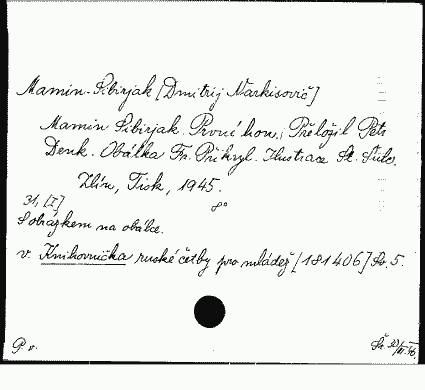 Mamin-Sibirjak [Dmitrij Narkisovič]
Mamin Sibirjak. První hon. Přeložil Petr
Denk. Obálka Fr. Přikryl. Ilustrace St.
Zlín, Tisk, 1945.
31, [I] 8°
S obrázkem na obálce.
v. Knihovnička ruské četby pro mládež [181406] Sv. 5.
P v.